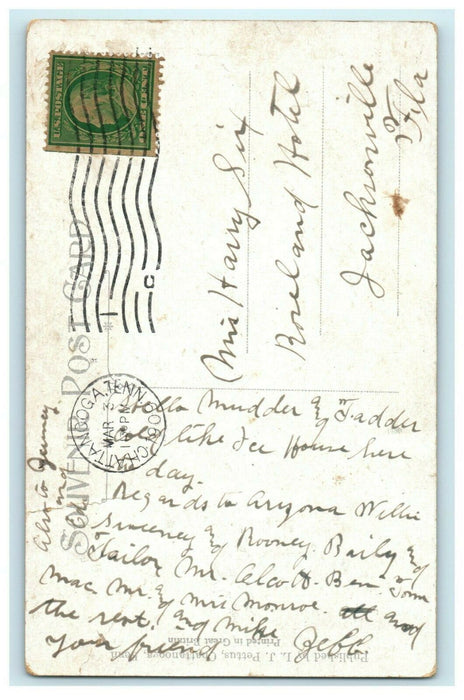 U.S. POSTAGE
ONE CENT
SOUVENIR POST CARD
CHATTANOOGA, TENN.
MAR 3
PM
1
C
Mrs Harry Six
Roseland Hotel
Jacksonville
Fla
Hello Mudder & Fadder
like Ice House here
day.
Regards to Arizona Willie
Sweeney & Rooney. Baily &
Tailor Mr. Alcott. Ben Tom
Mac Mr. & Mrs Monroe. and
the rest. and Mike
Your friend Zebb.
Also to
and
Published by L. J. Pettus, Chattanooga, Tenn.
Printed in Great Britain